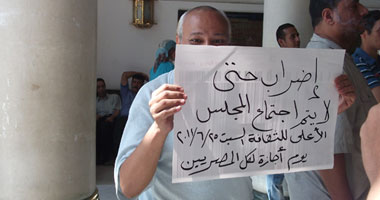 إضراب حتى
لا يتم اجتماع المجلس
الأعلى للثقافة السبت ٢٠١١/٦/٢٥
يوم أجازة لكل المصريين